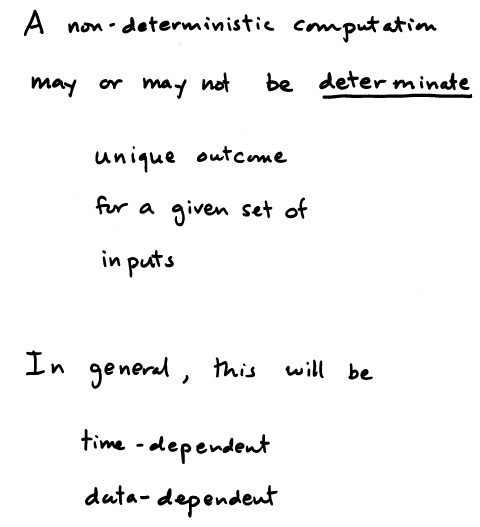 A non-deterministic computation
may or may not be determinate
unique outcome
for a given set of
inputs
In general, this will be
time-dependent
data-dependent